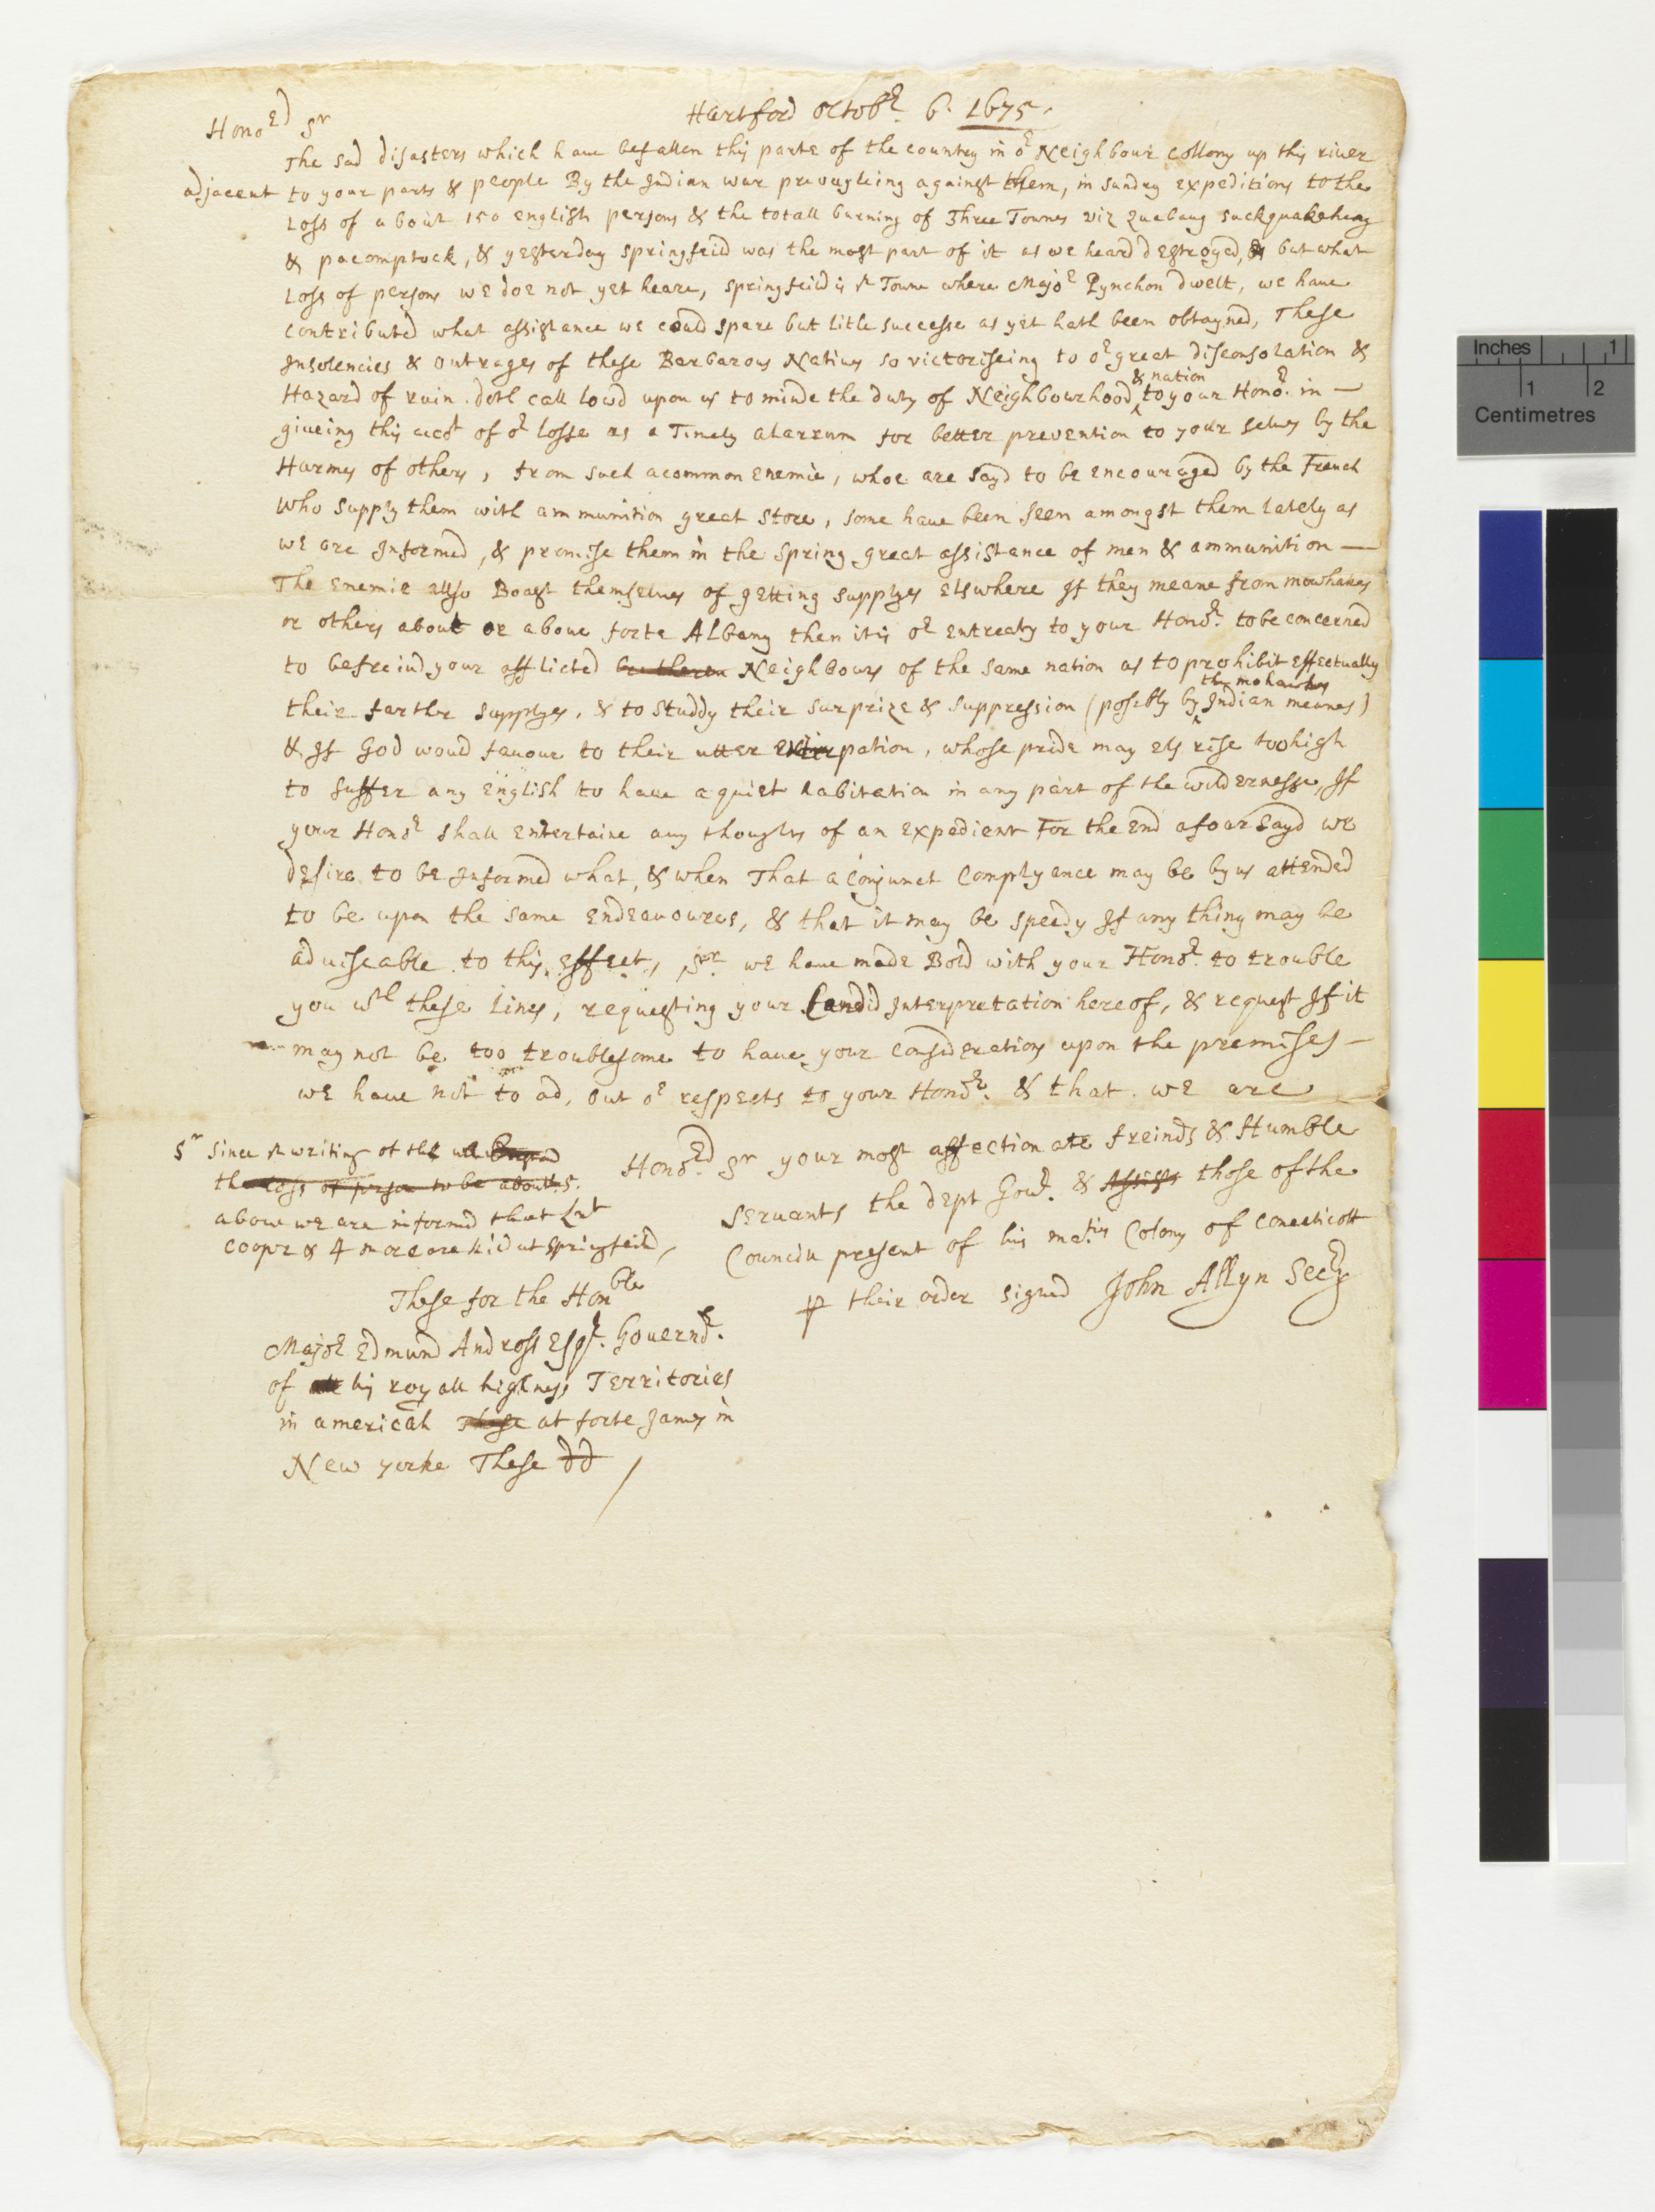 Hartford Octobr. 6. 1675.
Honord Sr
The sad disasters which haue befallen this parte of the country in or Neighbour Collony up this riuer
adjacent to your parts & people By the Indian war preuayleing against them, in sundry expeditions to the
Loss of about 150 english persons & the totall burning of Three Townes viz Quabaug Suckquakeheag
& pacomptock, & yesterday springfeild was the most part of it as we heard destroyed, but what
Loss of persons we doe not yet heare, springfeild is ye Towne where Major Pynchon dwelt, we haue
contributed what assistance we coud spare but litle successe as yet hath been obtayned, These
Insolencies & outrages of these Barbarous Natiues so victoriseing to or great disconsolation &
& nation
Hazard of ruin doth call lowd upon us to minde the duty of Neighbourhood to your Honor. in
giueing this accot of or losse as a Timely alarrum for better prevention to your selues by the
Harmes of others, from such a common enemie, whoe are sayd to be encouraged by the French
who supply them with ammunition great store, some haue been seen amongst them lately as
we are Informed, & promise them in the spring great assistance of men & ammunition
The enemie allso Boast themselues of getting supplyes elswhere If they meane from mowhakes
or others about or aboue forte Albany then it is or entreaty to your Honor. to be concerned
to befreind your afflicted brethren Neighbours of the same nation as to prohibit effectually
the mohawkes
their farther supplyes, & to studdy their surprize & suppression (posibly by Indian meanes)
& If God woud fauour to their utter extirpation, whose pride may els rise too high
to suffer any english to haue a quiet habitation in any part of the wildernesse, If
your Honor shall entertaine any thoughts of an expedient For the end afoarsayd we
desire to be Informed what, & when That a Conjunct Complyance may be by us attended
to be upon the same endeauoures, & that it may be speedy If any thing may be
aduiseable to this effect, Sr we haue made Bold with your Honor. to trouble
you wth these Lines, requesting your Candid Interpretation hereof, & request If it
may not be too troublesome to haue your considerations upon the premises
we haue not to ad, but or respects to your Honor. & that we are
Honord Sr your most affectionate freinds & Humble
Seruants the dept Gour. & Assists those of the
Councill present of his maties Colony of Conecticott
p their order signed John Allyn Secry
Sr Since ye writing of the
the loss of person to be about 5.
aboue we are informed that Lnt
Coopr & 4 more are kild at springfeild,
These for the Honble
Major Edmund Andross Esqr. Gouernor.
of his royall highness Territories
in americah These at forte James in
New yorke These dd